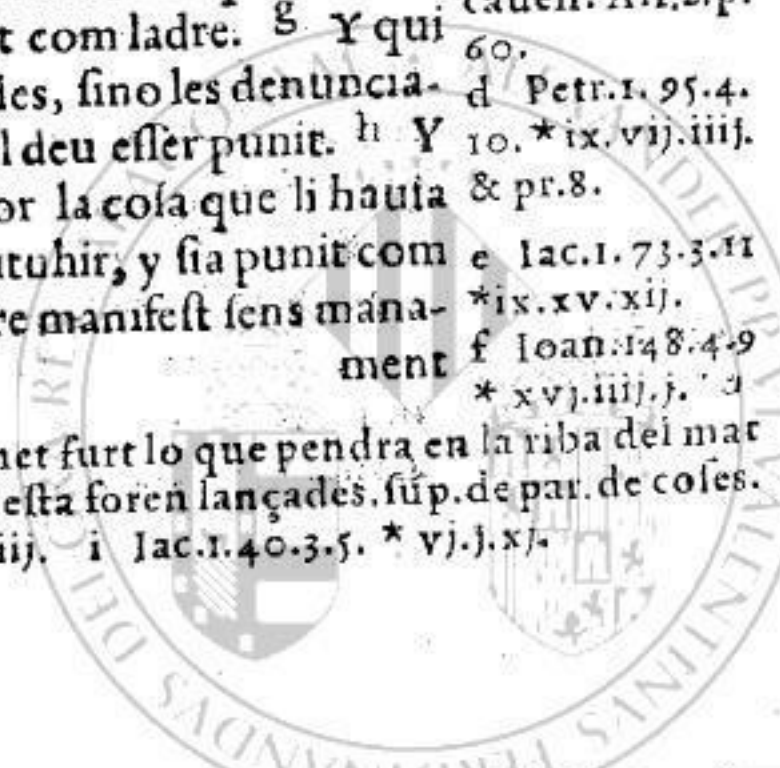 t com ladre. g Y qui
ies, ſino les denuncia-
l deu eſſer punit. h Y
or la coſa que li hauia
tuhir, y ſia punit com
re manifeſt ſens mana-
ment
60.
d Petr.1. 95.4.
10. * ix. vij. iiij.
& pr.8.
e Iac.1. 73.3.11
*ix.xv.xij.
f Ioan.148.4.9
* xvj.iiij.j.
net furt lo que pendra en la riba del mar
eſta foren lançades. ſup. de par. de coſes.
iij. i Iac.1.40.3.5. * vj.j.xj.